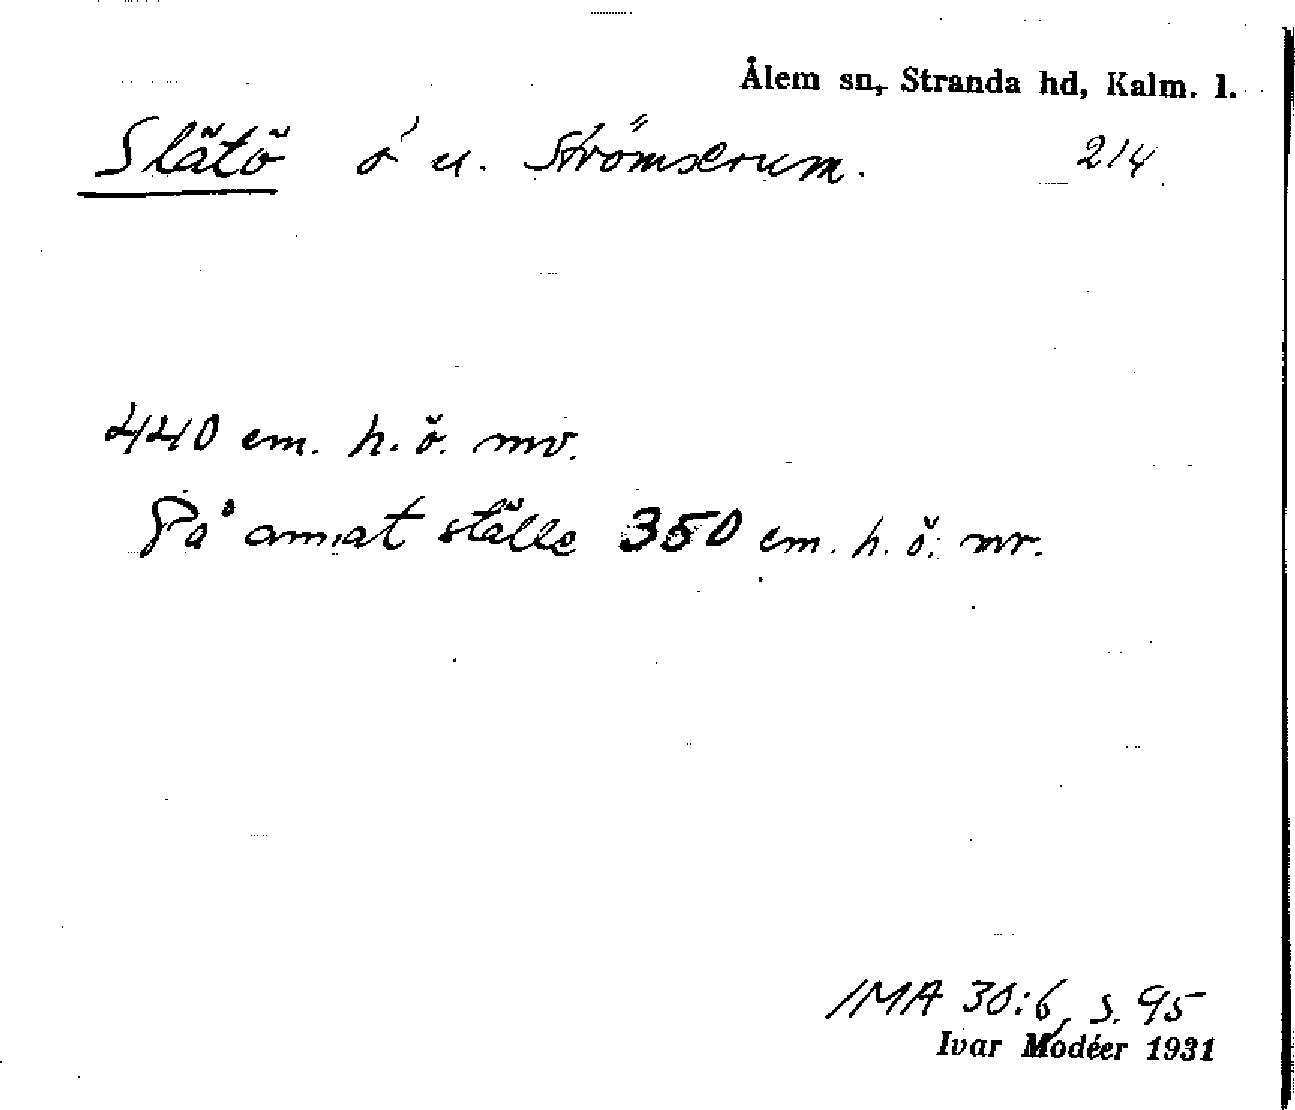 Ålem sn, Stranda hd, Kalm. l.
Slätö ö u. Strömserum. 214
440 cm. h. ö. mv.
På annat ställe 350 cm. h. ö. mv.
IMA 30:6, s. 95
Ivar Modéer 1931